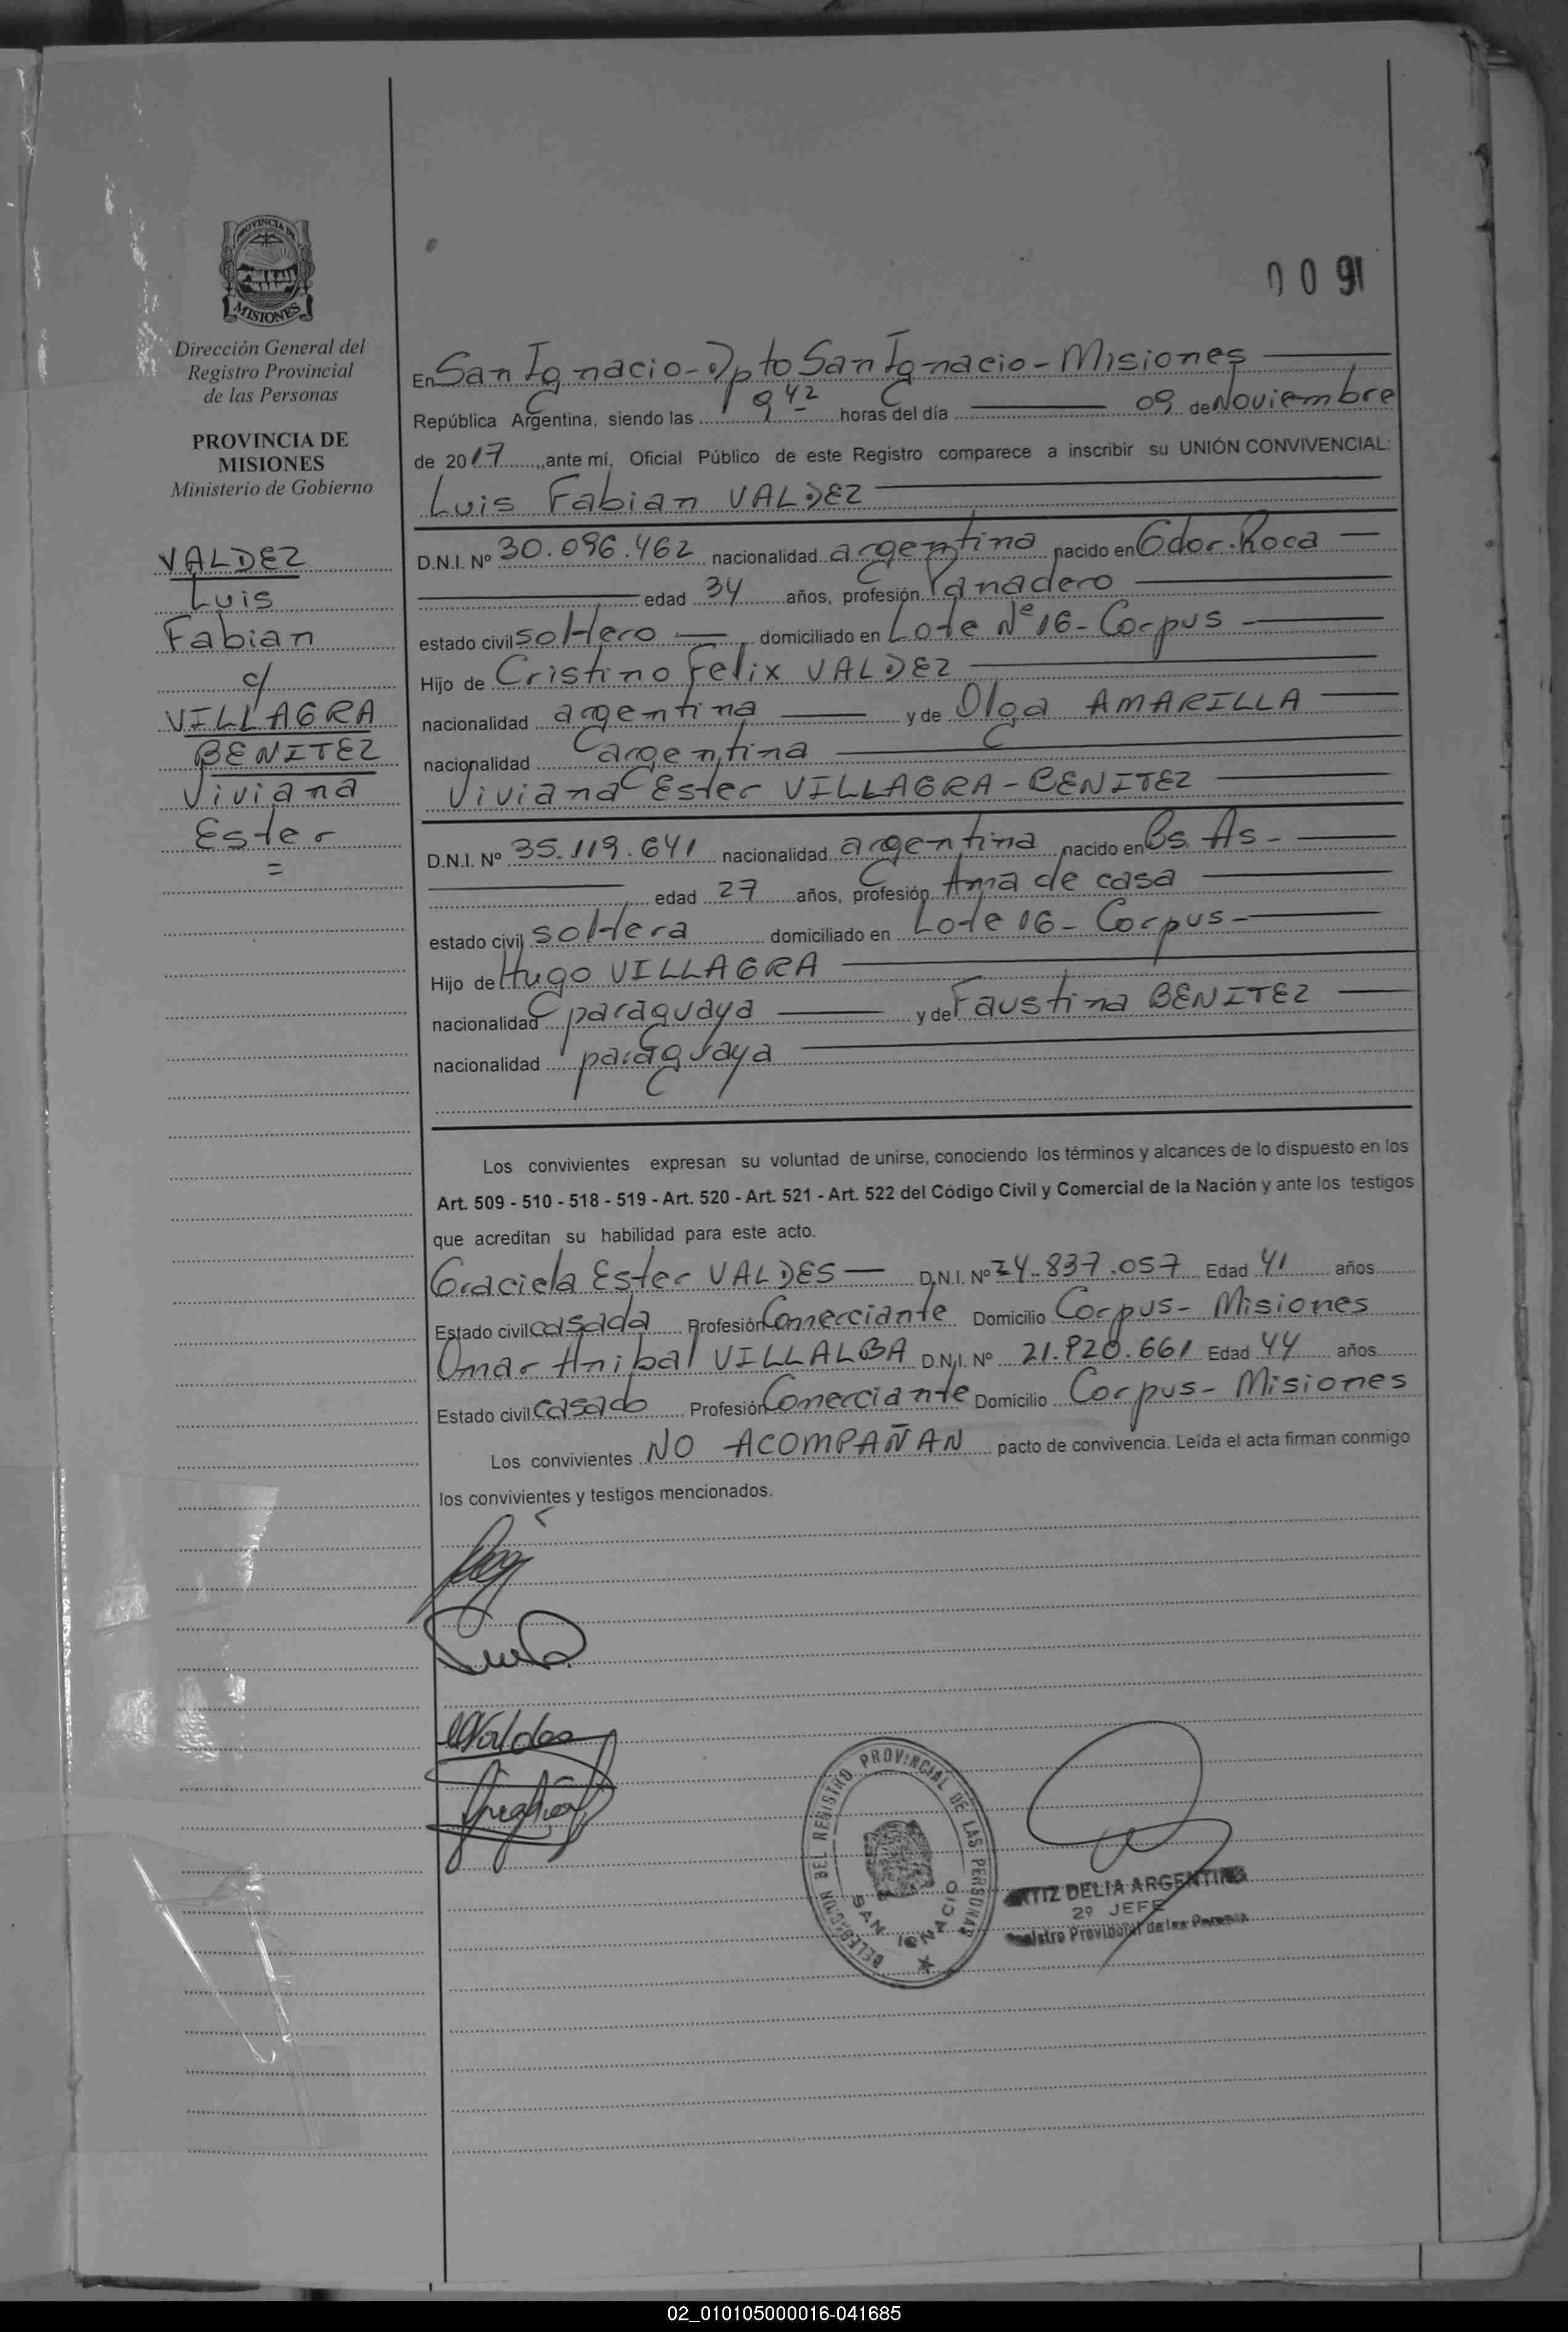 PROVINCIA DE
MISIONES
Dirección General del
Registro Provincial
de las Personas
PROVINCIA DE
MISIONES
Ministerio de Gobierno
VALDEZ
Luis
Fabian
c/
VILLAGRA
BENITEZ
Viviana
Ester
=
0091
En San Ignacio - Dpto San Ignacio - Misiones
República Argentina, siendo las 9 42 horas del día 09 de Noviembre
de 2017, ante mí, Oficial Público de este Registro comparece a inscribir su UNIÓN CONVIVENCIAL:
Luis Fabian VALDEZ
D.N.I. Nº 30.096.462 nacionalidad argentina nacido en Gdor. Roca
edad 34 años, profesión Panadero
estado civil soltero domiciliado en Lote Nº 16 - Corpus -
Hijo de Cristino Felix VALDEZ
nacionalidad argentina y de Olga AMARILLA
nacionalidad argentina
Viviana Ester VILLAGRA - BENITEZ
D.N.I. Nº 35.119.641 nacionalidad argentina nacido en Bs. As -
edad 27 años, profesión Ama de casa
estado civil soltera domiciliado en Lote 16 - Corpus -
Hijo de Hugo VILLAGRA
nacionalidad paraguaya y de Faustina BENITEZ
nacionalidad paraguaya
Los convivientes expresan su voluntad de unirse, conociendo los términos y alcances de lo dispuesto en los
Art. 509 - 510 - 518 - 519 - Art. 520 - Art. 521 - Art. 522 del Código Civil y Comercial de la Nación y ante los testigos
que acreditan su habilidad para este acto.
Graciela Ester VALDES D.N.I. Nº 24.837.057 Edad 41 años
Estado civil casada Profesión Comerciante Domicilio Corpus - Misiones
Omar Anibal VILLALBA D.N.I. Nº 21.820.661 Edad 44 años
Estado civil casado Profesión Comerciante Domicilio Corpus - Misiones
Los convivientes NO ACOMPAÑAN pacto de convivencia. Leída el acta firman conmigo
los convivientes y testigos mencionados.
DELEGACION DEL REGISTRO PROVINCIAL DE LAS PERSONAS
SAN IGNACIO
ORTIZ DELIA ARGENTINA
2º JEFE
Registro Provincial de las Personas
02_010105000016-041685